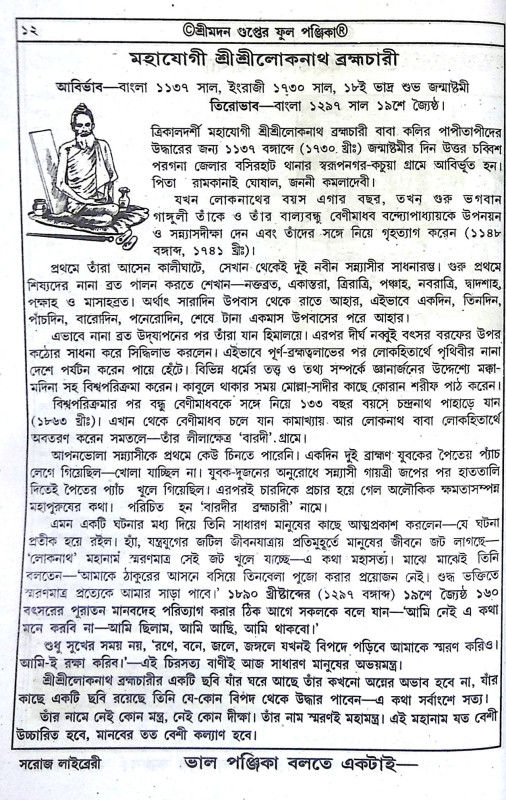 ১২
©শ্রীমদন গুপ্তের ফুল পঞ্জিকা®
মহাযোগী শ্রীশ্রীলোকনাথ ব্রহ্মচারী
আবির্ভাব—বাংলা ১১৩৭ সাল, ইংরাজী ১৭৩০ সাল, ১৮ই ভাদ্র শুভ জন্মাষ্টমী
তিরোভাব—বাংলা ১২৯৭ সাল ১৯শে জ্যৈষ্ঠ।
ত্রিকালদর্শী মহাযোগী শ্রীশ্রীলোকনাথ ব্রহ্মচারী বাবা কলির পাপীতাপীদের
উদ্ধারের জন্য ১১৩৭ বঙ্গাব্দে (১৭৩০ খ্রীঃ) জন্মাষ্টমীর দিন উত্তর চব্বিশ
পরগনা জেলার বসিরহাট থানার স্বরূপনগর-কচুয়া গ্রামে আবির্ভূত হন।
পিতা রামকানাই ঘোষাল, জননী কমলাদেবী।
যখন লোকনাথের বয়স এগার বছর, তখন গুরু ভগবান
গাঙ্গুলী তাঁকে ও তাঁর বাল্যবন্ধু বেণীমাধব বন্দ্যোপাধ্যায়কে উপনয়ন
ও সন্ন্যাসদীক্ষা দেন এবং তাঁদের সঙ্গে নিয়ে গৃহত্যাগ করেন (১১৪৮
বঙ্গাব্দ, ১৭৪১ খ্রীঃ)।
প্রথমে তাঁরা আসেন কালীঘাটে, সেখান থেকেই দুই নবীন সন্ন্যাসীর সাধনারম্ভ। গুরু প্রথমে
শিষ্যদের নানা ব্রত পালন করতে শেখান—নক্তব্রত, একান্তরা, ত্রিরাত্রি, পঞ্চাহ, নবরাত্রি, দ্বাদশাহ,
পক্ষাহ ও মাসাহব্রত। অর্থাৎ সারাদিন উপবাস থেকে রাতে আহার, এইভাবে একদিন, তিনদিন,
পাঁচদিন, বারোদিন, পনেরোদিন, শেষে টানা একমাস উপবাসের পরে আহার।
এভাবে নানা ব্রত উদ্‌যাপনের পর তাঁরা যান হিমালয়ে। এরপর দীর্ঘ নব্বুই বৎসর বরফের উপর
কঠোর সাধনা করে সিদ্ধিলাভ করলেন। এইভাবে পূর্ণ-ব্রহ্মত্বলাভের পর লোকহিতার্থে পৃথিবীর নানা
দেশে পর্যটন করেন পায়ে হেঁটে। বিভিন্ন ধর্মের তত্ত্ব ও তথ্য সম্পর্কে জ্ঞানার্জনের উদ্দেশ্যে মক্কা-
মদিনা সহ বিশ্বপরিক্রমা করেন। কাবুলে থাকার সময় মোল্লা-সাদীর কাছে কোরান শরীফ পাঠ করেন।
বিশ্বপরিক্রমার পর বন্ধু বেণীমাধবকে সঙ্গে নিয়ে ১৩৩ বছর বয়সে চন্দ্রনাথ পাহাড়ে যান
(১৮৬৩ খ্রীঃ)। এখান থেকে বেণীমাধব চলে যান কামাখ্যায় আর লোকনাথ বাবা লোকহিতার্থে
অবতরণ করেন সমতলে—তাঁর লীলাক্ষেত্র 'বারদী' গ্রামে।
আপনভোলা সন্ন্যাসীকে প্রথমে কেউ চিনতে পারেনি। একদিন দুই ব্রাহ্মণ যুবকের পৈতেয় প্যাঁচ
লেগে গিয়েছিল—খোলা যাচ্ছিল না। যুবক-দুজনের অনুরোধে সন্ন্যাসী গায়ত্রী জপের পর হাততালি
দিতেই পৈতের প্যাঁচ খুলে গিয়েছিল। এরপরই চারদিকে প্রচার হয়ে গেল অলৌকিক ক্ষমতাসম্পন্ন
মহাপুরুষের কথা। পরিচিত হন 'বারদীর ব্রহ্মচারী' নামে।
এমন একটি ঘটনার মধ্য দিয়ে তিনি সাধারণ মানুষের কাছে আত্মপ্রকাশ করলেন—যে ঘটনা
প্রতীক হয়ে রইল। হ্যাঁ, যন্ত্রযুগের জটিল জীবনযাত্রায় প্রতিমুহূর্তে মানুষের জীবনে জট লাগছে—
'লোকনাথ' মহানাম স্মরণমাত্র সেই জট খুলে যাচ্ছে—এ কথা মহাসত্য। মাঝে মাঝেই তিনি
বলতেন—'আমাকে ঠাকুরের আসনে বসিয়ে তিনবেলা পুজো করার প্রয়োজন নেই। শুদ্ধ ভক্তিতে
স্মরণমাত্র প্রত্যেকে আমার সাড়া পাবে।' ১৮৯০ খ্রীষ্টাব্দের (১২৯৭ বঙ্গাব্দ) ১৯শে জ্যৈষ্ঠ ১৬০
বৎসরের পুরাতন মানবদেহ পরিত্যাগ করার ঠিক আগে সকলকে বলে যান—'আমি নেই এ কথা
মনে করবি না—আমি ছিলাম, আমি আছি, আমি থাকবো।'
শুধু সুখের সময় নয়, 'রণে, বনে, জলে, জঙ্গলে যখনই বিপদে পড়িবে আমাকে স্মরণ করিও।
আমি-ই রক্ষা করিব।'—এই চিরসত্য বাণীই আজ সাধারণ মানুষের অভয়মন্ত্র।
শ্রীশ্রীলোকনাথ ব্রহ্মচারীর একটি ছবি যাঁর ঘরে আছে তাঁর কখনো অন্নের অভাব হবে না, যাঁর
কাছে একটি ছবি রয়েছে তিনি যে-কোন বিপদ থেকে উদ্ধার পাবেন—এ কথা সর্বাংশে সত্য।
তাঁর নামে নেই কোন মন্ত্র, নেই কোন দীক্ষা। তাঁর নাম স্মরণই মহামন্ত্র। এই মহানাম যত বেশী
উচ্চারিত হবে, মানবের তত বেশী কল্যাণ হবে।
সরোজ লাইব্রেরী
ভাল পঞ্জিকা বলতে একটাই—